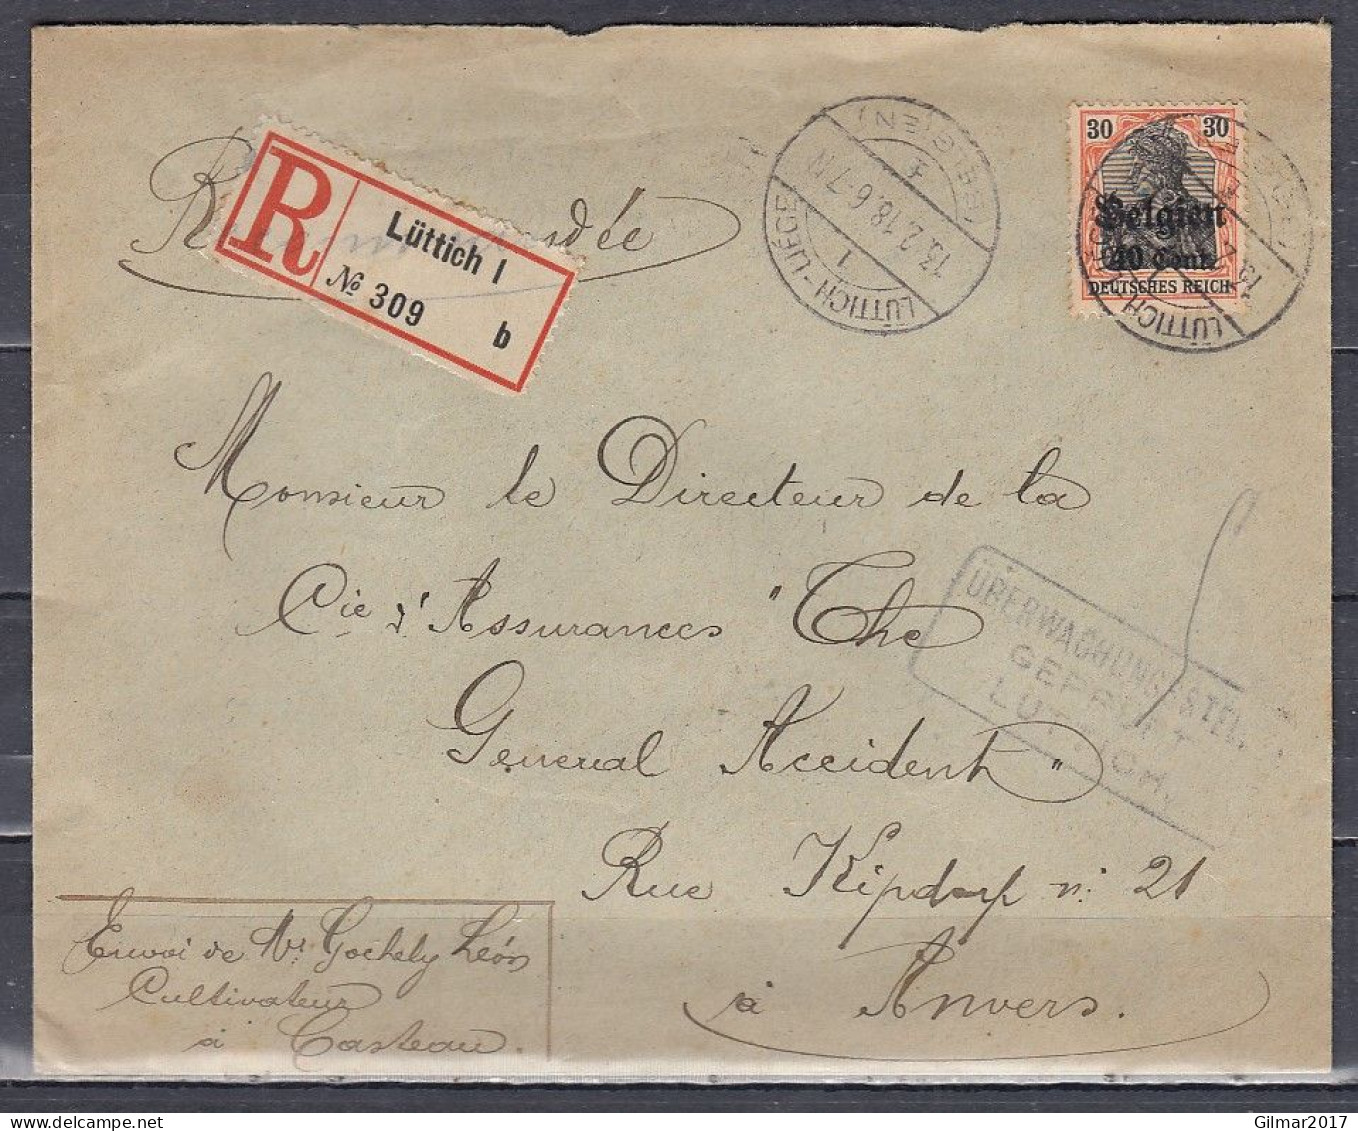 R dée
R
Lüttich 1
№ 309 b
LÜTTICH-LIÉGE
13.2.18.6-7 N
1
(BELGIEN)
30 30
Belgien
40 Cent.
DEUTSCHES REICH
LÜTTICH
Monsieur le Directeur de la
Cie d'Assurances "The
General Accident"
Rue Kipdorf n: 21
à Anvers.
ÜBERWACHUNGSSTEL
GEPRÜFT
LÜTTICH.
Envoi de Mr Gochely Léon
Cultivateur
à Casteau.
Gilmar2017